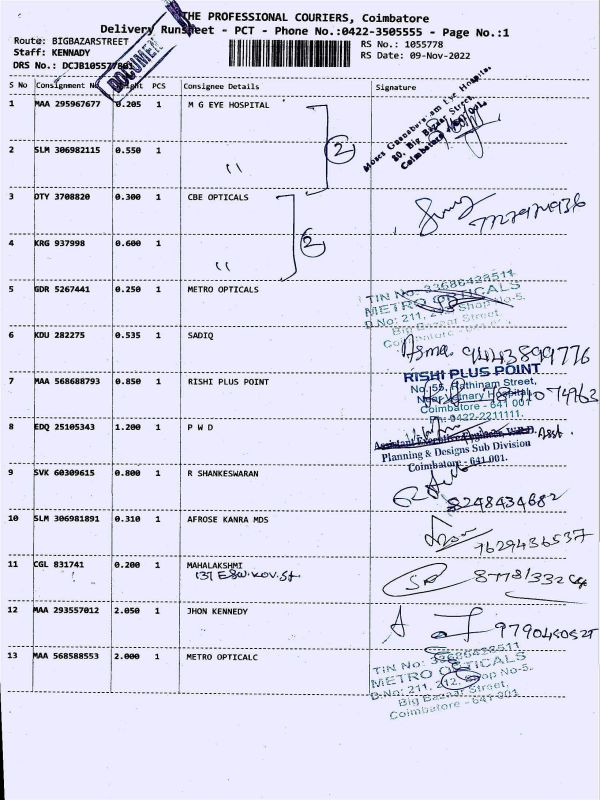 THE PROFESSIONAL COURIERS, Coimbatore
Delivery Runsheet - PCT - Phone No.:0422-3505555 - Page No.:1
Route: BIGBAZARSTREET
RS No.: 1055778
Staff: KENNADY
RS Date: 09-Nov-2022
DRS No.: DCJB1055778
DOCUMEN
S No Consignment PCS Consignee Details Signature
1 MAA 295967677 0.205 1 M G EYE HOSPITAL
Eye Hospital
80, Big Bazaar Street
Coimbatore
2
2 SLM 306982115 0.550 1 "
3 OTY 3708820 0.300 1 CBE OPTICALS
2
4 KRG 937998 0.600 1 "
5 GDR 5267441 0.250 1 METRO OPTICALS
TIN No: 33686428511
METRO OPTICALS
D.No: 211, 212, Shop No-5.
Big Bazaar Street,
6 KDU 282275 0.535 1 SADIQ
Asma 9443899776
7 MAA 568688793 0.850 1 RISHI PLUS POINT
RISHI PLUS POINT
No. 55, Rathinam Street,
Coimbatore - 641 001
Ph: 0422-2211111.
8 EDQ 25105343 1.200 1 P W D
Assistant Executive Engineer, W.R.D. Asst.
Planning & Designs Sub Division
Coimbatore - 641 001.
9 SVK 60309615 0.800 1 R SHANKESWARAN
8248434682
10 SLM 306981891 0.310 1 AFROSE KANRA MDS
9629436537
11 CGL 831741 0.200 1 MAHALAKSHMI
12 MAA 293557012 2.050 1 JHON KENNEDY
13 MAA 568588553 2.000 1 METRO OPTICALC
TIN No: 33686428511
METRO OPTICALS
D.No: 211, 212, Shop No-5.
Big Bazaar Street,
Coimbatore - 641 001